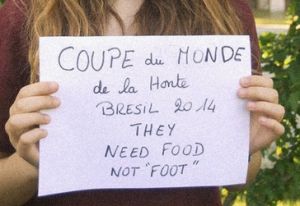 COUPE du MONDE
de la Honte
BRESIL 2014
THEY
NEED FOOD
NOT "FOOT"